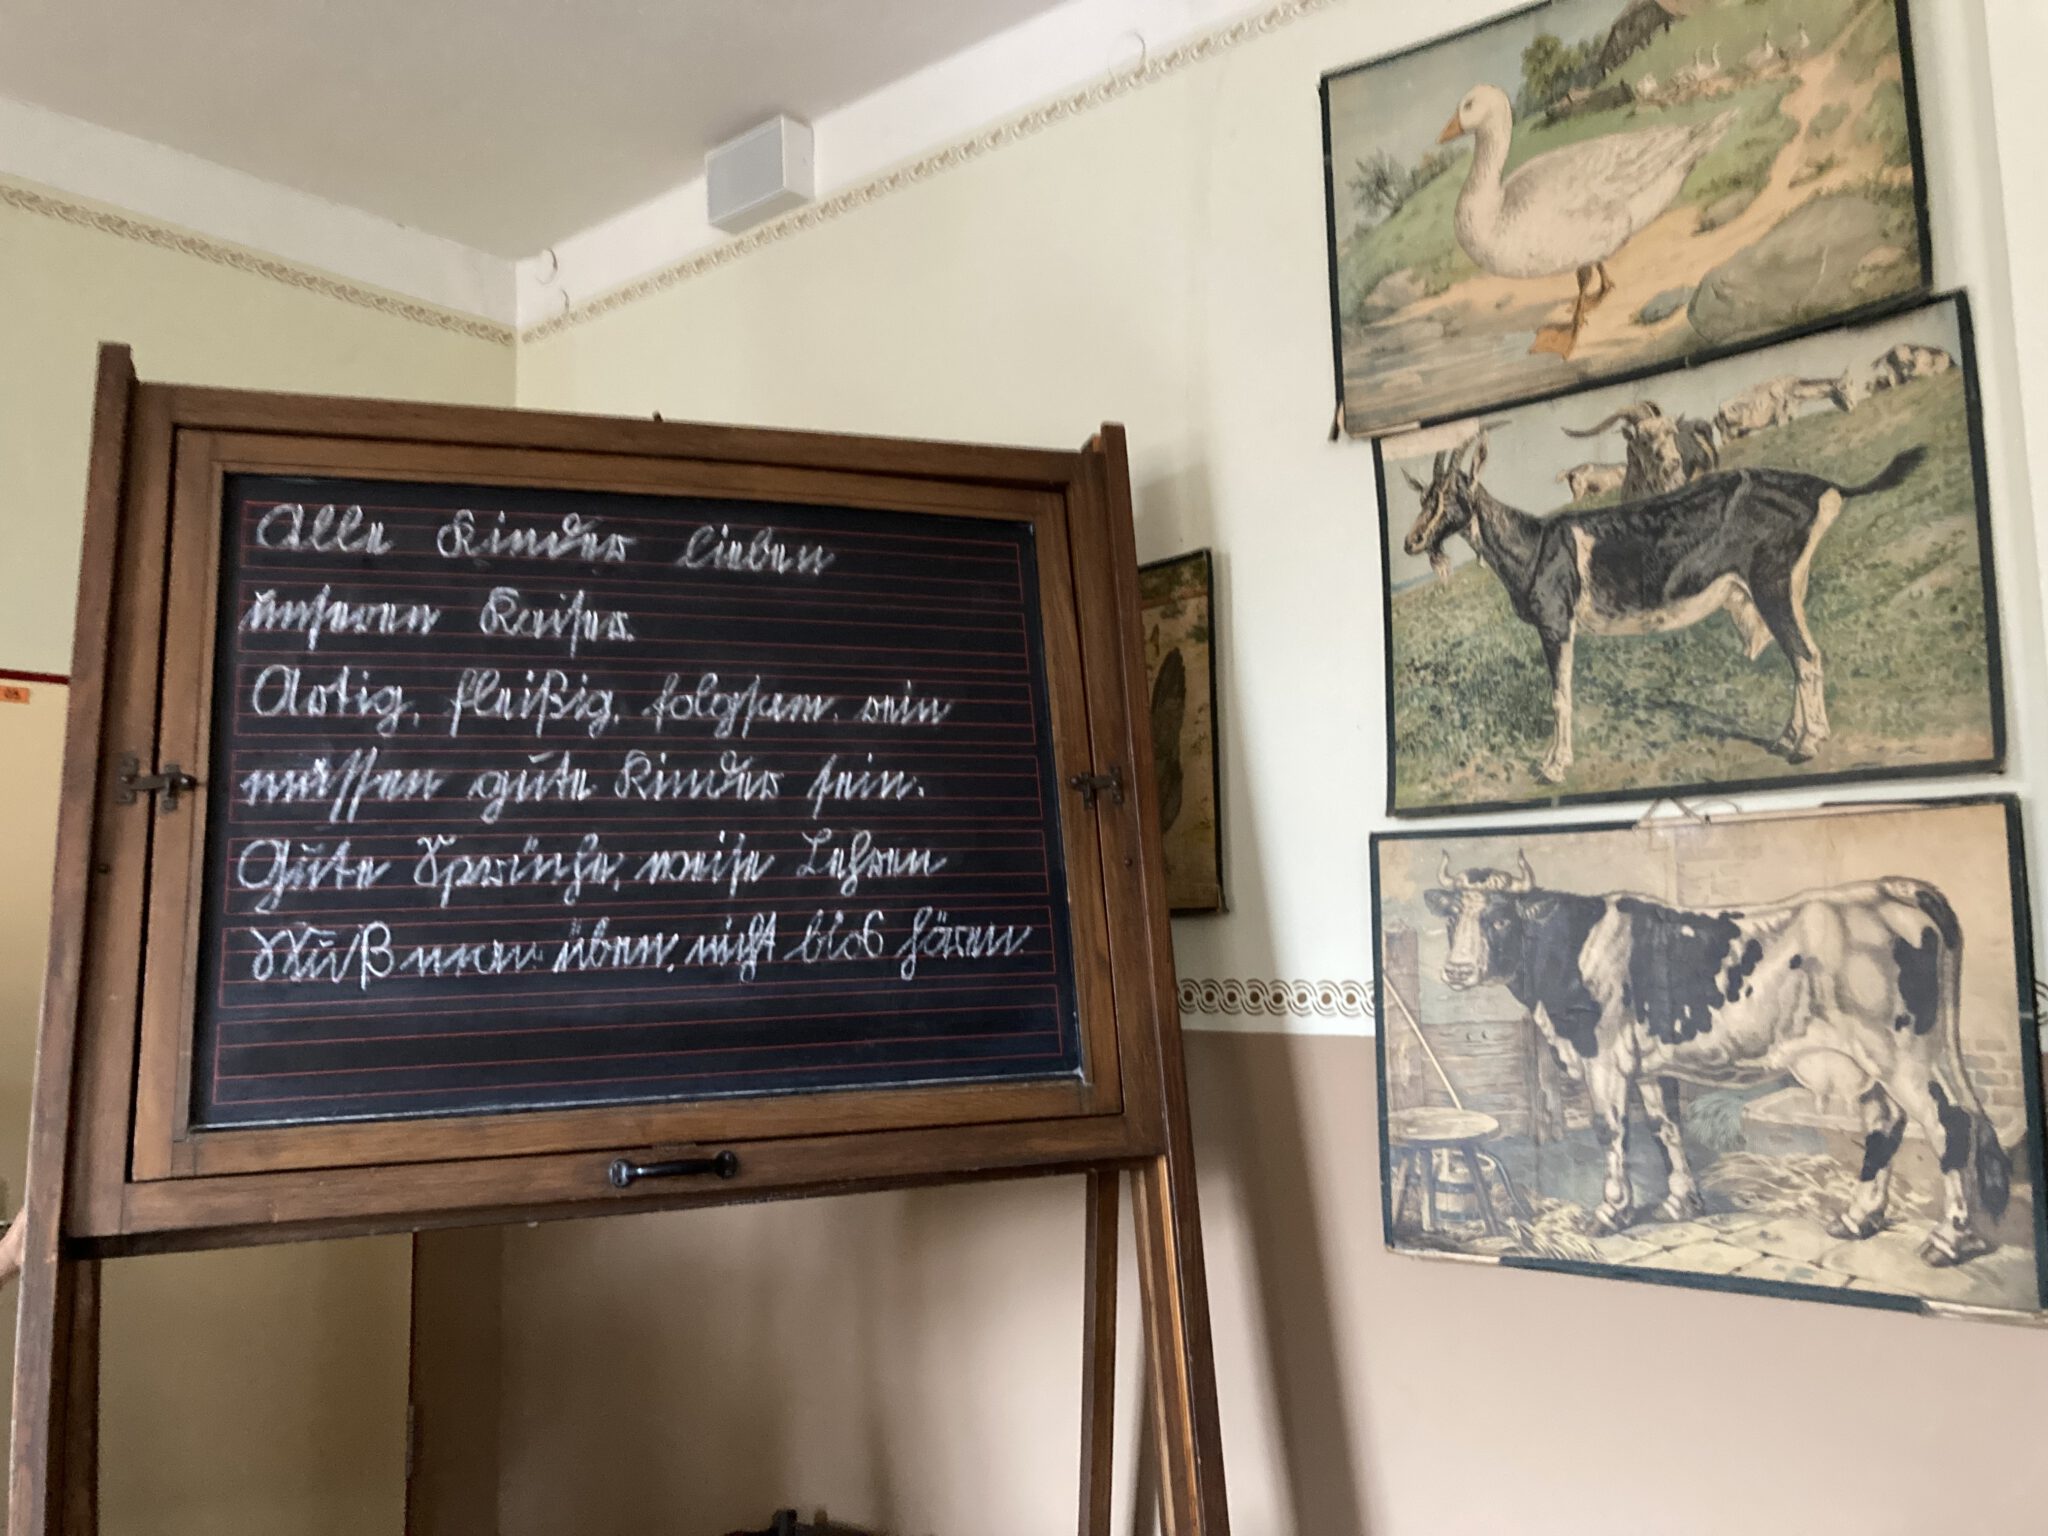 Alle Kinder lieben
unseren Kaiser.
Artig, fleißig, folgsam, rein
müssen gute Kinder sein.
Gute Sprüche, weise Lehren
Muß man üben, nicht blos hören.